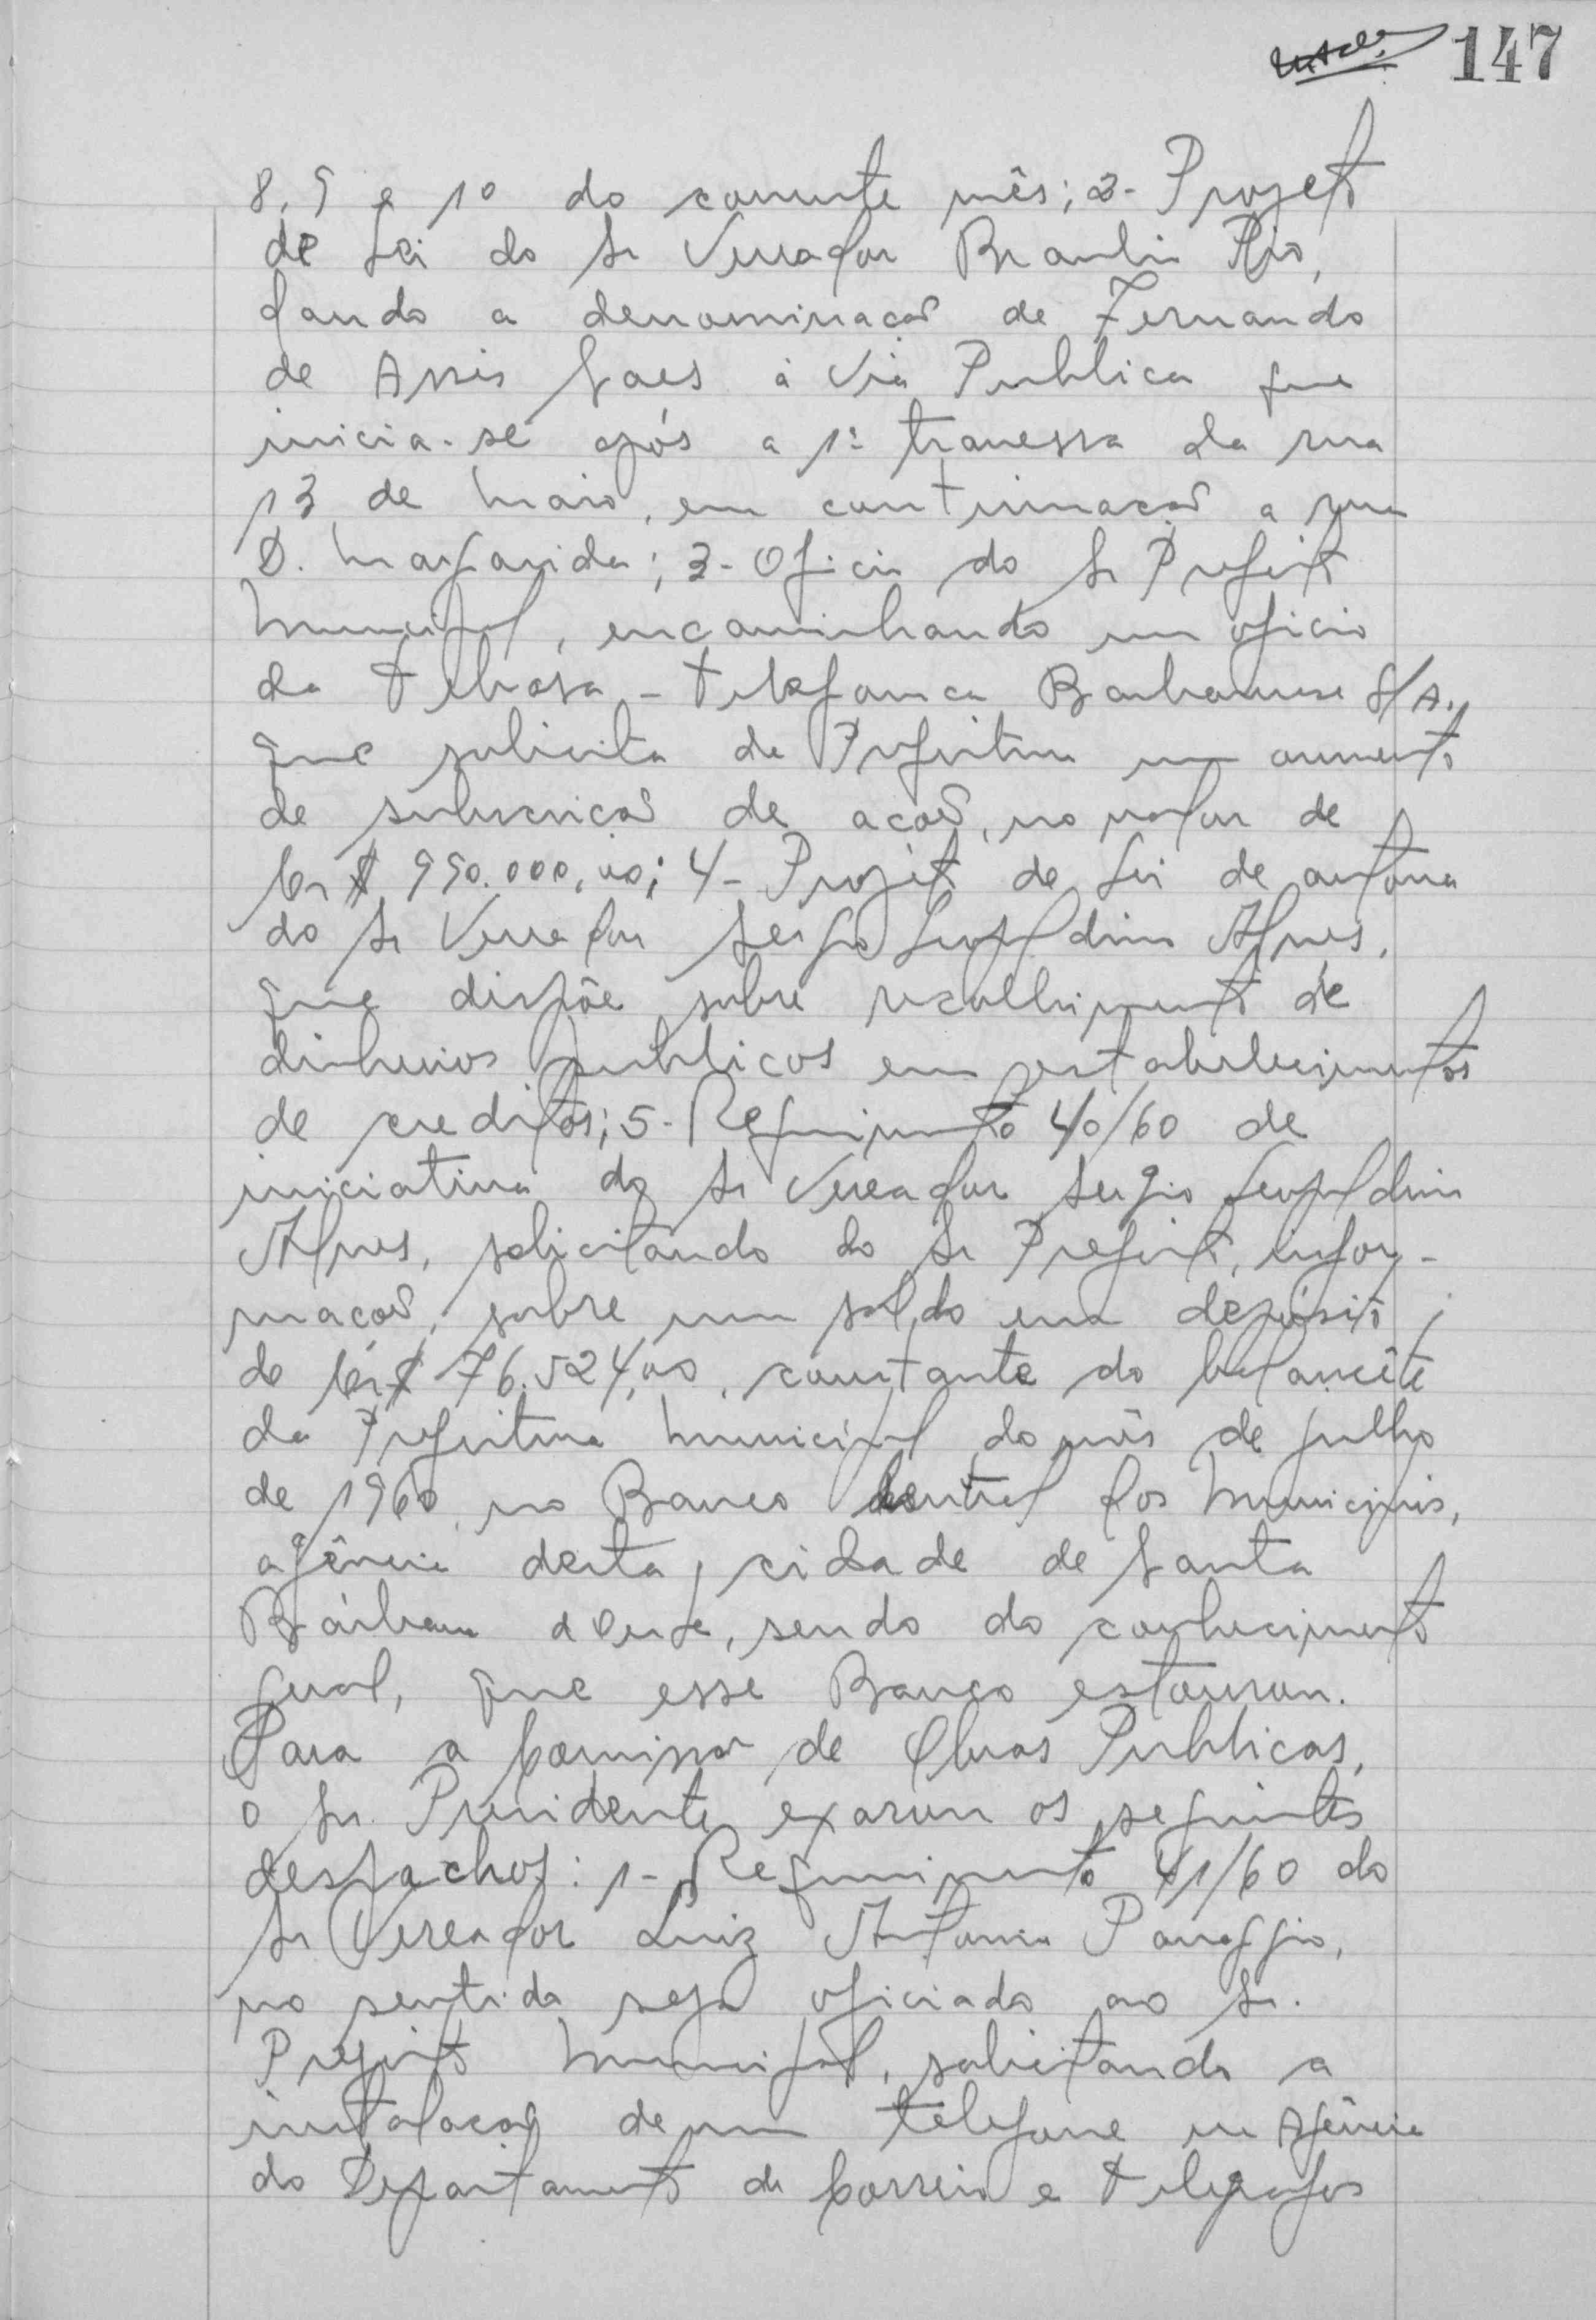 147
8, 9 e 10 do corrente mês; 2- Projeto
de Lei do Sr Vereador Braulio Pio,
dando a denominação de Fernando
de Assis Saes á Via Publica que
inicia-se após a 1ª travessa da rua
13 de Maio, em continuação a rua
D. Margarida; 3- Oficio do Sr Prefeito
Municipal, encaminhando um oficio
da Tebasa - Telefonica Barbarense S/A.,
que solicita da Prefeitura um aumento
de subscrição de ação, no valor de
Cr$ 990.000,00; 4- Projeto de Lei de autoria
do Sr Vereador Sergio Leopoldino Alves,
que dispõe sobre recolhimento de
dinheiros publicos em estabelecimentos
de creditos; 5- Requerimento 40/60 de
iniciativa do Sr Vereador Sergio Leopoldino
Alves, solicitando do Sr Prefeito, infor-
mação, sobre um saldo em depósito
de Cr$ 76.524,00, constante do balancête
da Prefeitura Municipal do mês de julho
de 1960, no Banco Central dos Municipios,
agência desta cidade de Santa
Bárbara d'Oeste, sendo do conhecimento
geral, que esse Banco estourou.
Para a Comissão de Obras Publicas,
o Sr. Presidente exarou os seguintes
despachos: 1- Requerimento 41/60 do
Sr Vereador Luiz Antonio Panaggio,
no sentido seja oficiado ao Sr.
Prefeito Municipal, solicitando a
instalação de um telefone na Agência
do Departamento de Correio e Telegrafos